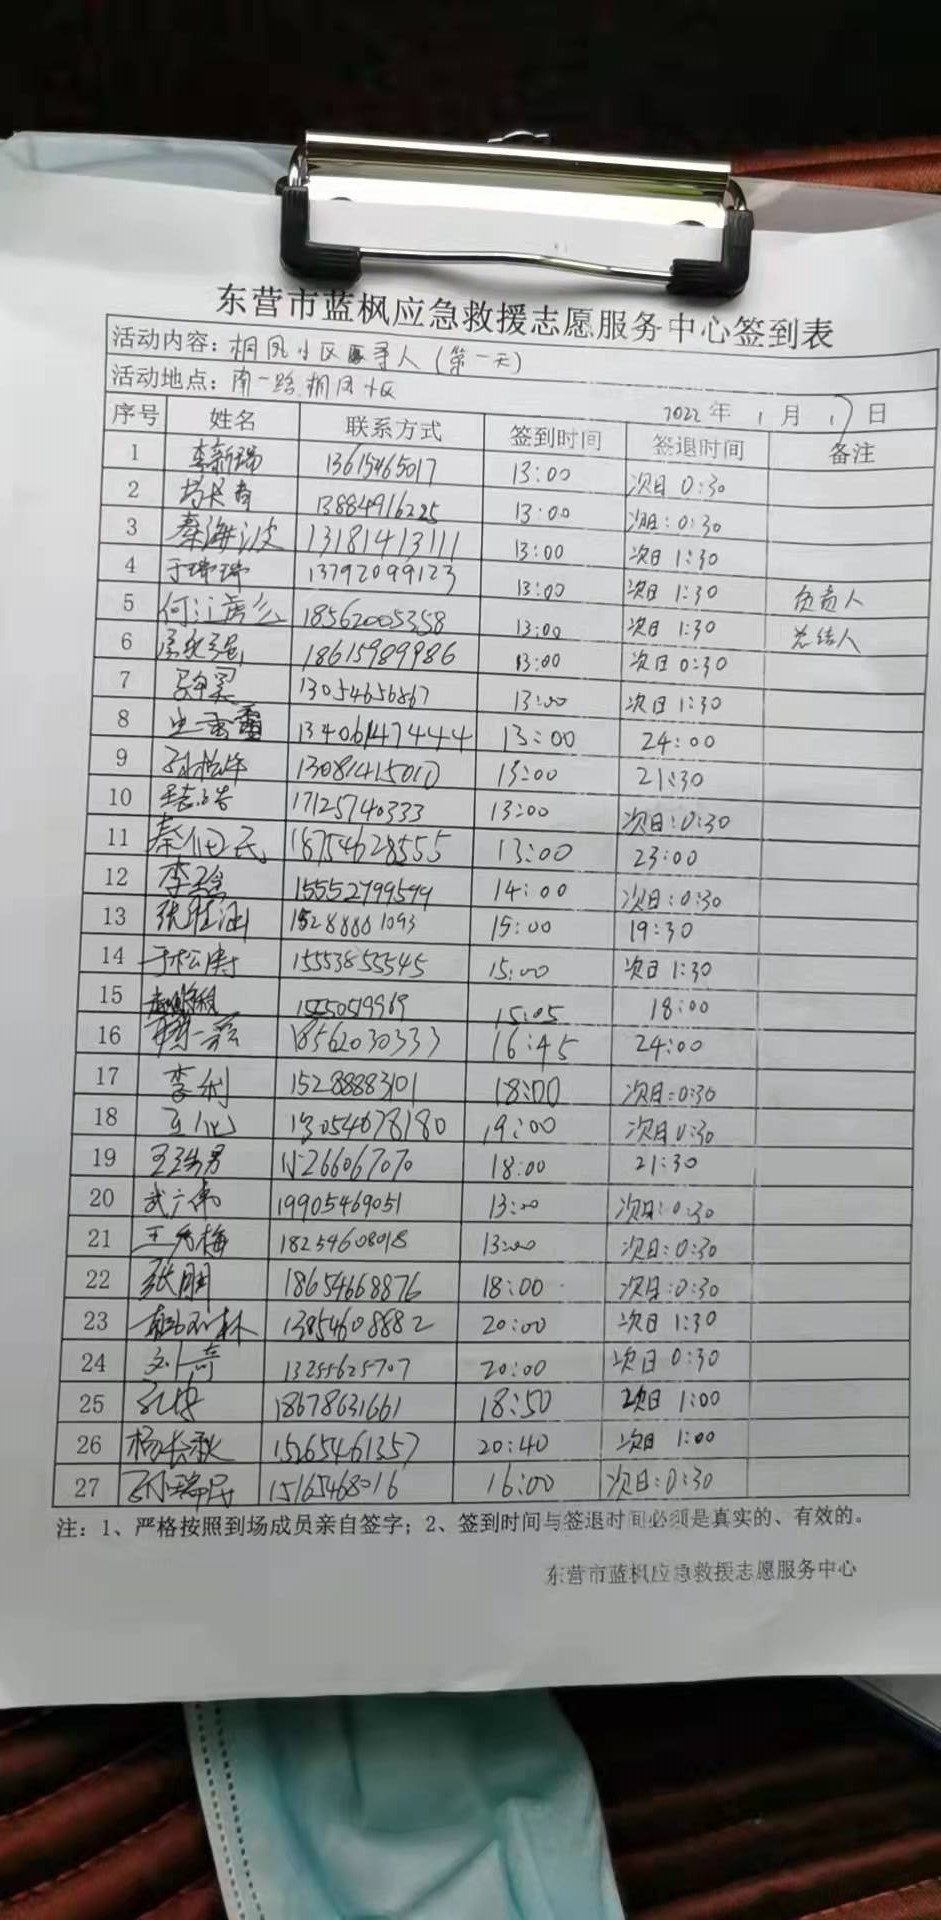 东营市蓝枫应急救援志愿服务中心签到表
活动内容：桐凤小区寻人（第一天）
活动地点：南一路桐凤小区 2022年1月17日
序号 姓名 联系方式 签到时间 签退时间 备注
1 李新瑞 13615465017 13:00 次日0:30
2 13884916225 13:00 次日:0:30
3 秦海波 13181413111 13:00 次日1:30
4 于瑞瑞 13792099123 13:00 次日1:30 负责人
5 18562005358 13:00 次日1:30 总结人
6 18615989986 13:00 次日0:30
7 13054656867 13:00 次日1:30
8 13406147444 13:00 24:00
9 13:00 21:30
10 17125740333 13:00 次日:0:30
11 秦伯民 18754628555 13:00 23:00
12 15552799599 14:00 次日:0:30
13 15288881093 15:00 19:30
14 于松涛 15553855545 15:00 次日1:30
15 15:05 18:00
16 18562030333 16:45 24:00
17 李利 15288883101 18:00 次日:0:30
18 13054678180 19:00 次日0:30
19 15266067070 18:00 21:30
20 武广伟 19905469051 13:00 次日:0:30
21 王秀梅 18254608018 13:00 次日:0:30
22 张朋 18654668876 18:00 次日:0:30
23 13854608882 20:00 次日1:30
24 刘奇 13255625707 20:00 次日0:30
25 18678631661 18:50 次日1:00
26 杨长秋 15265461357 20:40 次日1:00
27 孙瑞民 15165468016 16:00 次日:0:30
注：1、严格按照到场成员亲自签字；2、签到时间与签退时间必须是真实的、有效的。
东营市蓝枫应急救援志愿服务中心